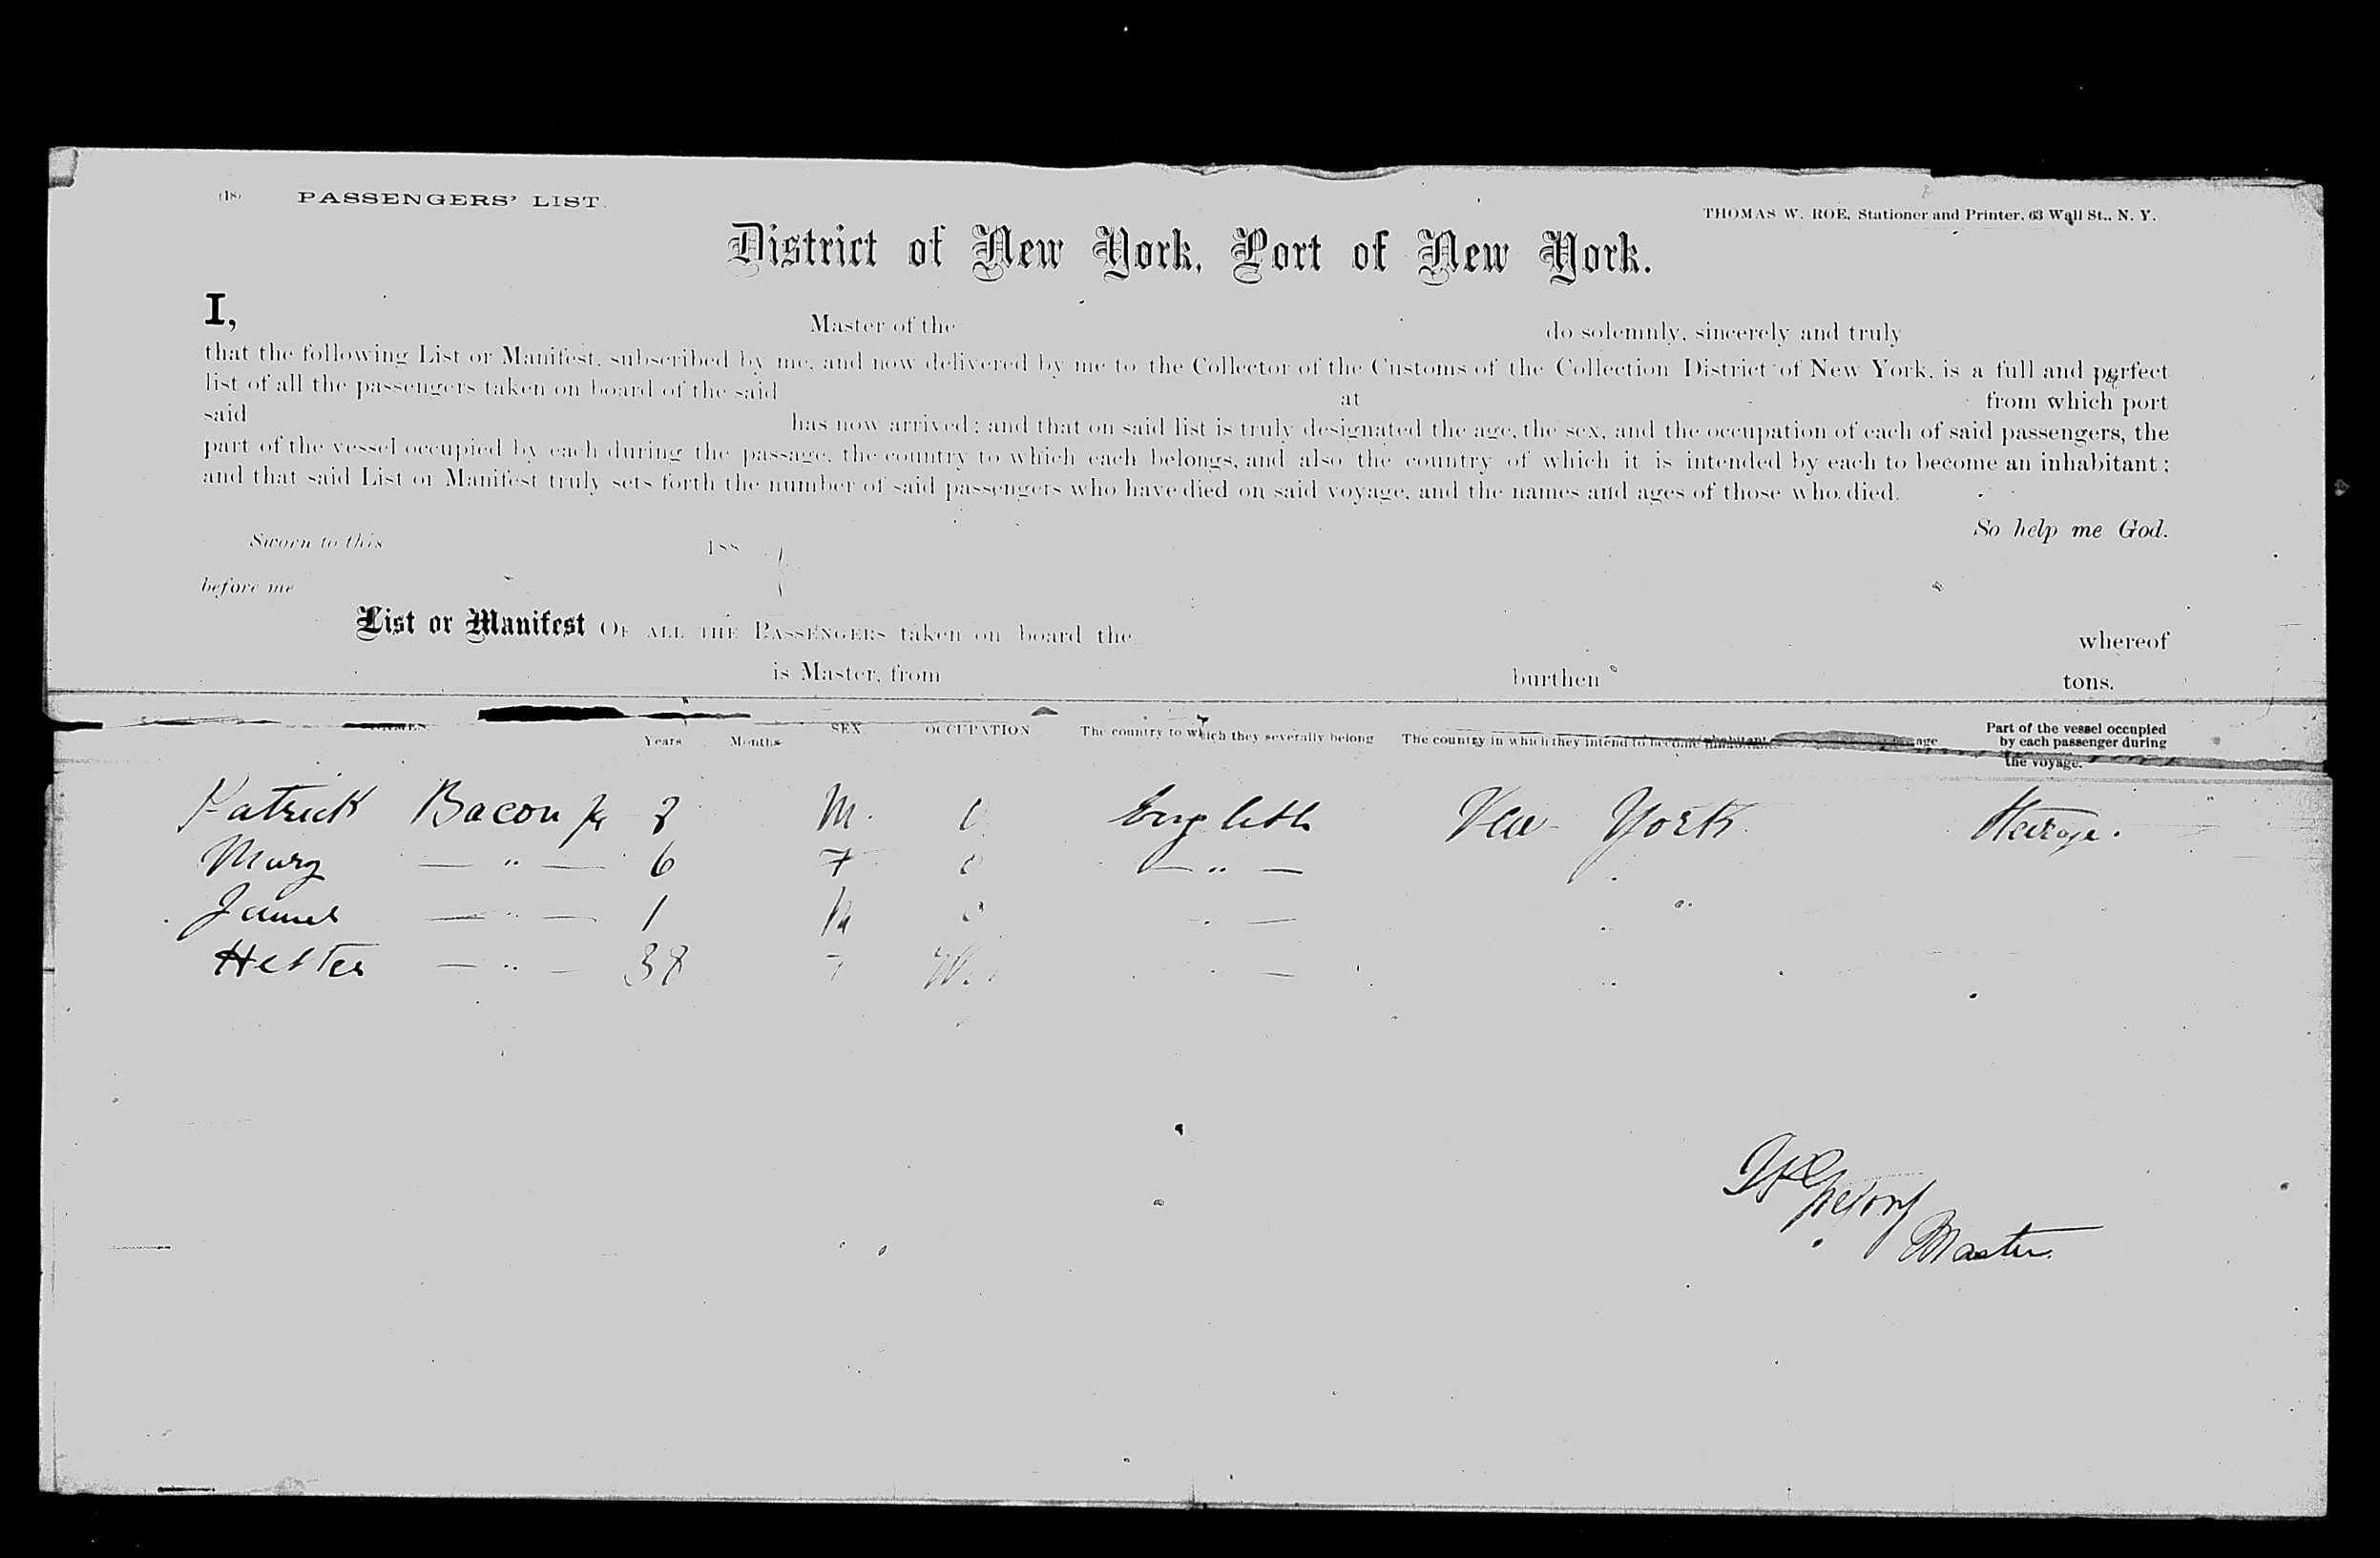 (18) PASSENGERS' LIST.
THOMAS W. ROE, Stationer and Printer, 63 Wall St., N. Y.
District of New York, Port of New York.
I, Master of the do solemnly, sincerely and truly
that the following List or Manifest, subscribed by me, and now delivered by me to the Collector of the Customs of the Collection District of New York, is a full and perfect
list of all the passengers taken on board of the said at from which port
said has now arrived; and that on said list is truly designated the age, the sex, and the occupation of each of said passengers, the
part of the vessel occupied by each during the passage, the country to which each belongs, and also the country of which it is intended by each to become an inhabitant;
and that said List or Manifest truly sets forth the number of said passengers who have died on said voyage, and the names and ages of those who died.
So help me God.
Sworn to this 188
before me
List or Manifest OF ALL THE PASSENGERS taken on board the whereof
is Master, from burthen tons.
Years Months SEX OCCUPATION The country to which they severally belong The country in which they intend to become inhabitants Part of the vessel occupied
by each passenger during
the voyage.
Patrick Bacon Jr 8 M. 0 English New York Steerage.
Mary — " — 6 F 0 — " —
James — " — 1 M 0 " — "
Hester — " — 38 F " —
Master